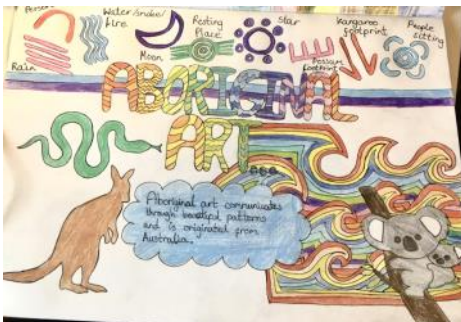 Person
Water/Snake/
Fire
Resting
Place
Star
Kangaroo
footprint
People
sitting
Rain
Moon
Possum
footprint
ABORIGINAL
ART...
Aboriginal art communicates
through beautiful patterns
and is originated from
Australia.